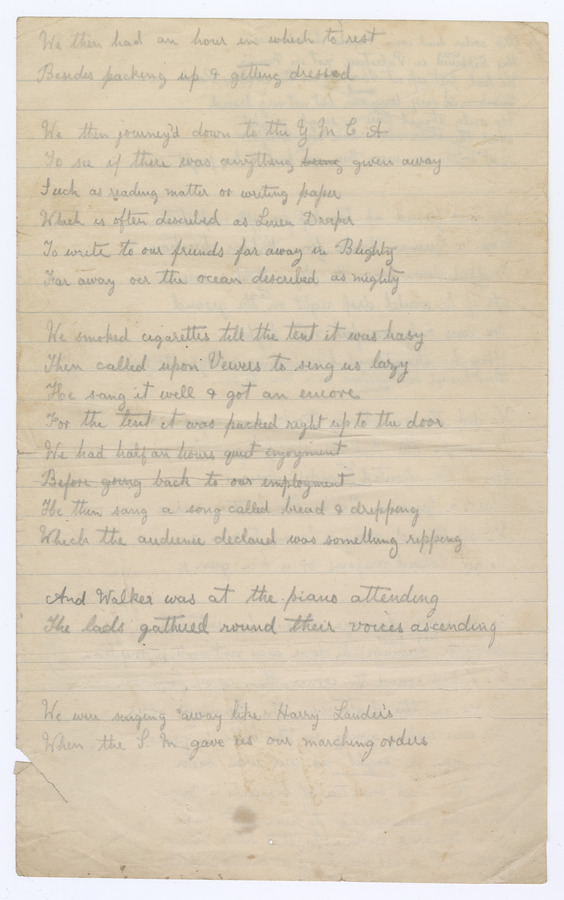 We then had an hour in which to rest
Besides packing up & getting dressed
We then journey'd down to the Y M C A
To see if there was anything being given away
Such as reading matter or writing paper
Which is often described as Linen Draper
To write to our friends far away in Blighty
Far away oer the ocean described as mighty
We smoked cigarettes till the tent it was hasy
Then called upon to sing us lazy
He sang it well & got an encore
For the tent it was packed right up to the door
We had half an hours quiet enjoyment
Before going back to our employment
He then sang a song called bread & dripping
Which the audience declared was something ripping
And Walker was at the piano attending
The lads gathered round their voices ascending
We were singing away like Harry Lauders
When the S. M. gave us our marching orders